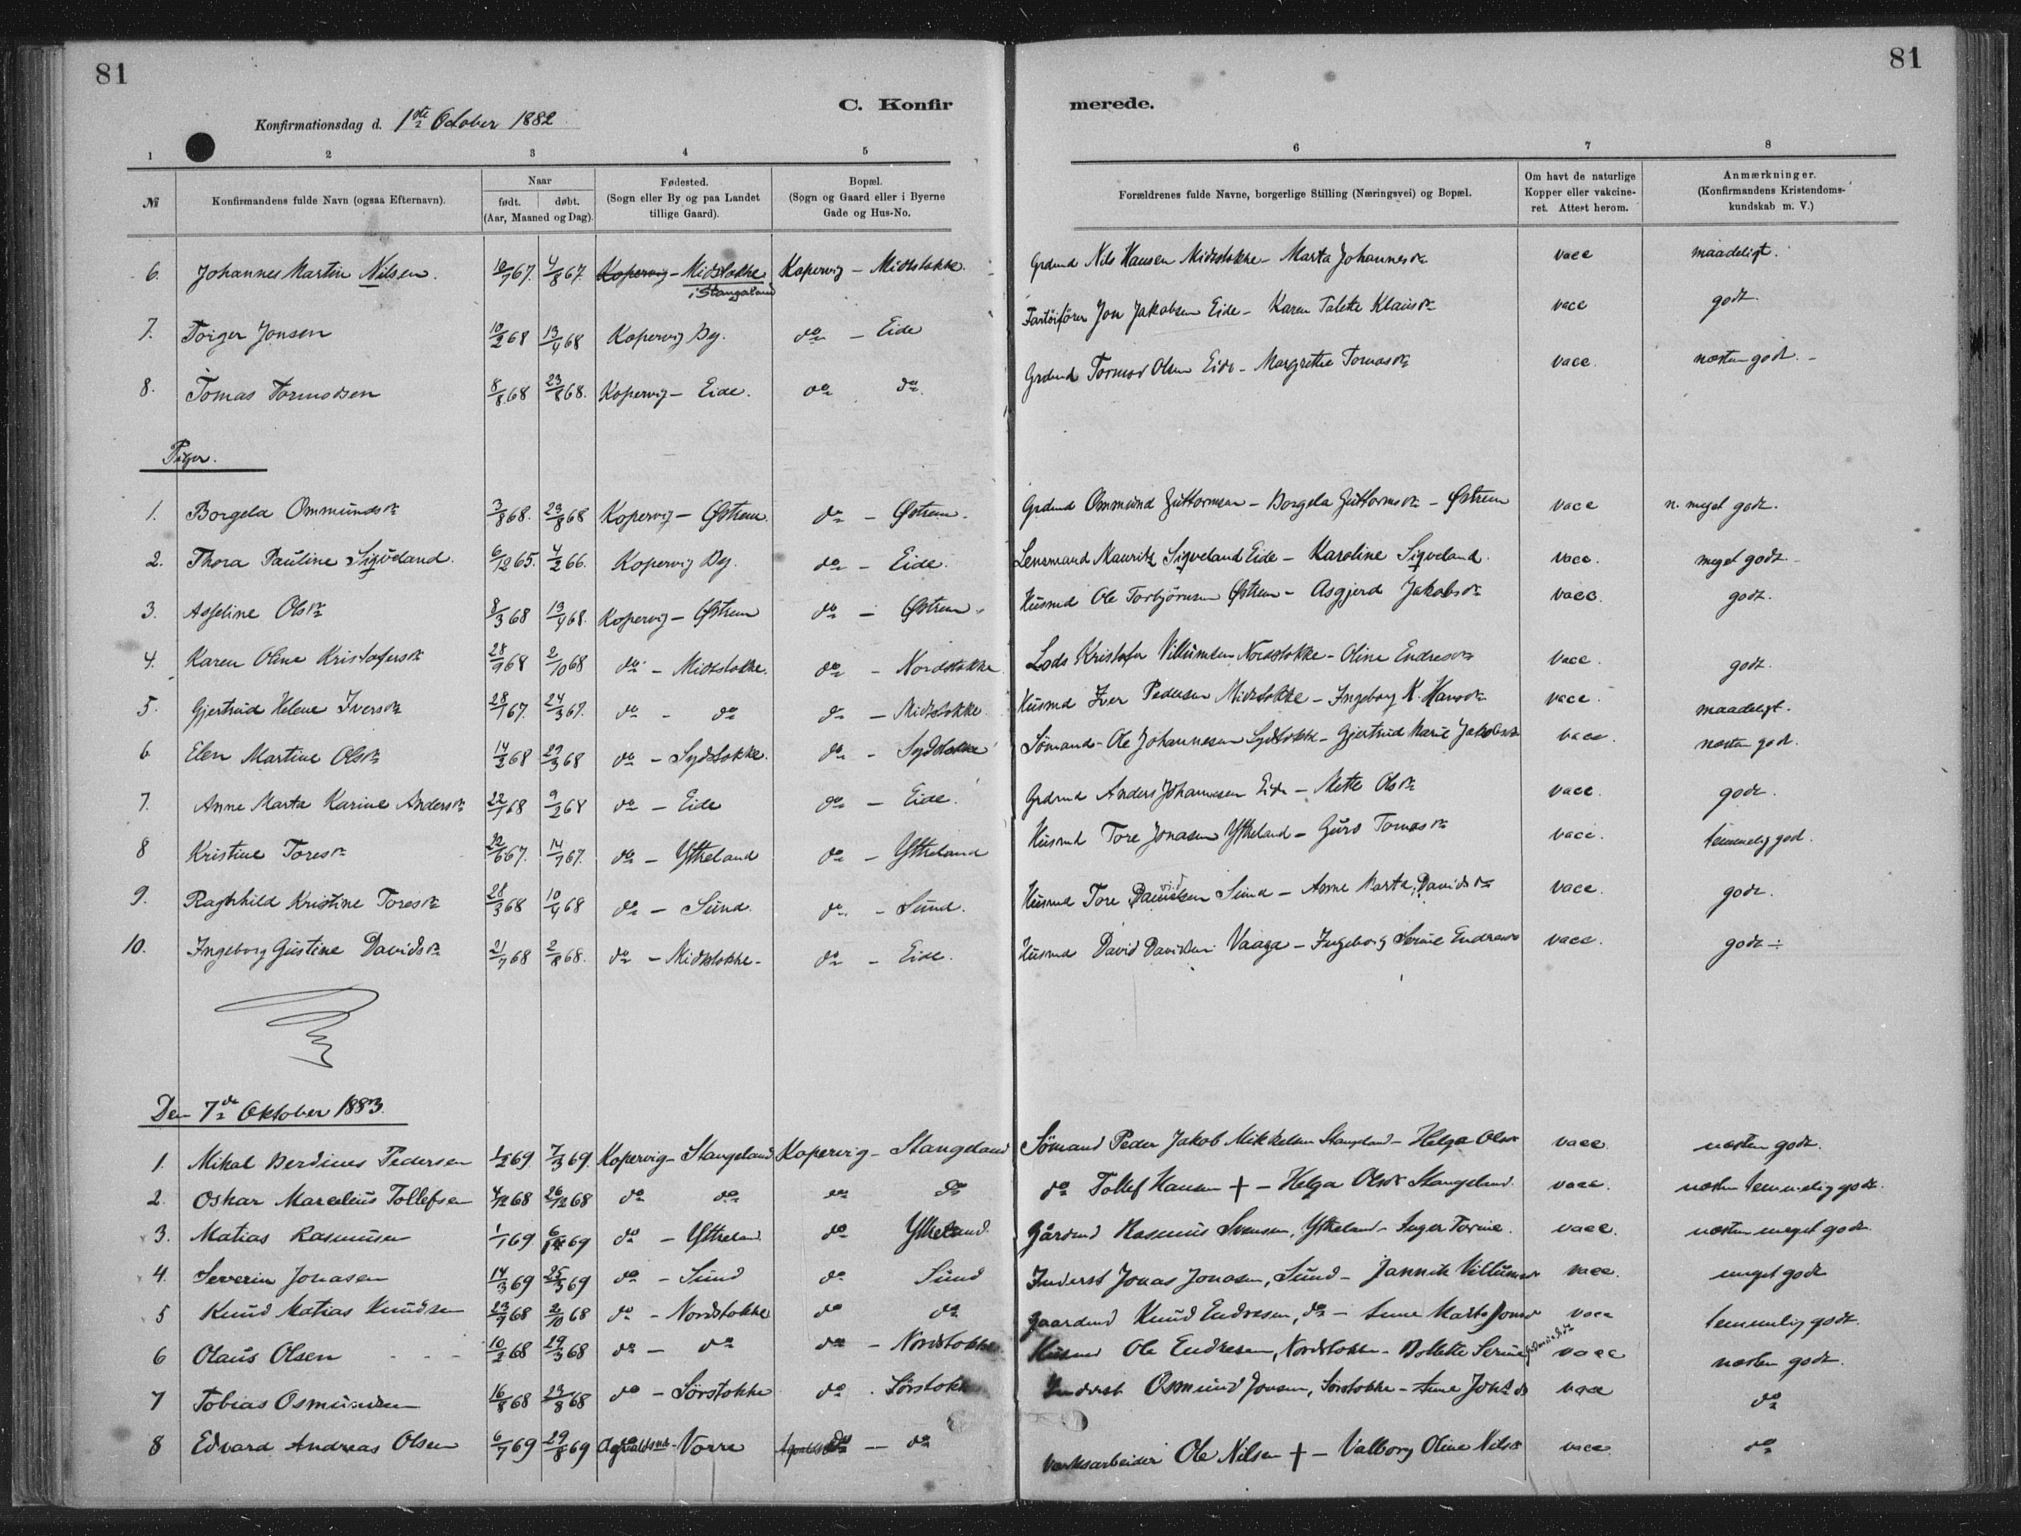 81
81
C. Konfirmerede.
Konfirmationsdag d. 1ste October 1882
1 2 3 4 5 6 7 8
№ Konfirmandens fulde Navn (ogsaa Efternavn). Naar født. døbt. (Aar, Maaned og Dag). Fødested. (Sogn eller By og paa Landet tillige Gaard). Bopæl. (Sogn og Gaard eller i Byerne Gade og Hus-No. Forældrenes fulde Navne, borgerlige Stilling (Næringsvei) og Bopæl. Om havt de naturlige Kopper eller vakcineret. Attest herom. Anmærkninger. (Konfirmandens Kristendomskundskab m. V.)
6. Johannes Martin Nilsen. 67. 4/8 67. Kopervig - Midtstokke i Stangeland Kopervig - Midtstokke. Grdmd Nils Hansen Midtstokke - Marta Johannesdr vacc maadeligt.
7. Torger Jonsen 10/2 68 13/4 68 Kopervig By. do - Eide Fartøifører Jon Jakobsen Eide - Karen Talette Klausdr vacc godt.
8. Tomas Tormodsen 8/8 68 23/8 68. Kopervig - Eide. do do Grdmd Tormod Olsen Eide - Margrethe Tomasdr vacc. næsten godt. -
Piger.
1. Borgela Ommundsdr 3/8 68. 23/8 68 Kopervig - Østrem. do - Østrem. Grdmd Ommund Guttormsen - Borgela Guttormsdr - Østrem vacc n. meget godt.
2. Thora Pauline Sigveland. 6/12 65. 4/2 66. Kopervig By. do - Eide. Lensmand Mauritz Sigveland Eide - Karoline Sigveland. vacc. meget godt -
3. Asseline Olsdr 8/3 68 13/4 68. Kopervig - Østrem do - Østrem. Husmd Ole Torbjørnsen Østrem - Asgjerd Jakobsdr vacc. godt.
4. Karen Oline Kristofersdr 28/9 68 2/10 68 do - Midtstokke. do - Nordstokke Lods Kristofer Villumsen Nordstokke - Oline Endresdr vacc. godt.
5. Gjertrud Helene Iversdr 28/1 67. 24/3 67. do - do do - Midtstokke. Husmd Iver Pedersen Midtstokke - Ingeborg K. Hansdr vacc. maadeligt.
6 Elen Martine Olsdr 14/2 68 29/3 68 do - Sydstokke. do - Sydstokke Sømand - Ole Johannesen Sydstokke - Gjertrud Marie Jakobsdr vacc. næsten godt.
7. Anne Marta Karine Andersdr 22/1 68 9/2 68 do - Eide do - Eide. Grdmd Anders Johannesen Eide - Mette Olsdr vacc. godt.
8 Kristine Toresdr 22/6 67. 14/7 67. do - Ytreland do - Ytreland Husmd Tore Jonasen Ytreland - Guro Tomasdr vacc. temmelig godt.
9. Raghhild Kristine Toresdr 28/3 68 10/4 68 do - Sund. do - Sund. Husmd Tore Davidsen Sund - Anne Marta Davidsdr vacc. godt.
10. Ingeborg Gustine Davidsdr 21/7 68 2/8 68. do - Midtstokke - do - Eide. Husmd David Davidsen Vaaga - Ingeborg Serine Endresdr vacc. godt ÷
Den 7de Oktober 1883.
1. Mikal Berdines Pedersen 1/2 69 7/3 69 Kopervig - Stangeland Kopervig - Stangeland Sømand Peder Jakob Mikkelsen Stangeland - Helga Olsdr vacc næsten godt.
2. Oskar Marcelius Tollefsen 4/12 68 26/12 68 do do do do do Tollef Hansen + - Helga Olsdr Stangeland. vacc. næsten temmelig godt.
3. Matias Rasmusen 1/1 69 69 do - Ytreland do Ytreland Gårdmd Rasmus Svensen, Ytreland - Inger Torine. vacc. næsten meget godt
4. Severin Jonasen 14/3 69 25/3 69 do - Sund do Sund Inderst Jonas Jonasen, Sund - Jannik Villumsdr vacc. meget godt
5 Knud Matias Knudsen 23/9 68 2/10 68 do - Nordstokke do do Gaardmd Knud Endresen, do - Anne Marta Jonsdr vacc temmelig godt.
6 Olaus Olsen 10/2 68 29/3 68 do - do do - Nordstokke Husmd Ole Endresen, Nordstokke - Bollette Serine vacc næsten godt.
7 Tobias Osmundsen 16/8 68 23/8 68 do - Sørstokke do - Sørstokke Inderst Osmund Jonsen, Sørstokke - Anne vacc do
8 Edvard Andreas Olsen 6/7 69 29/8 69 - Vorre do - do Verksarbeider Ole Nilsen + - Valborg Oline Nilsdr vacc do